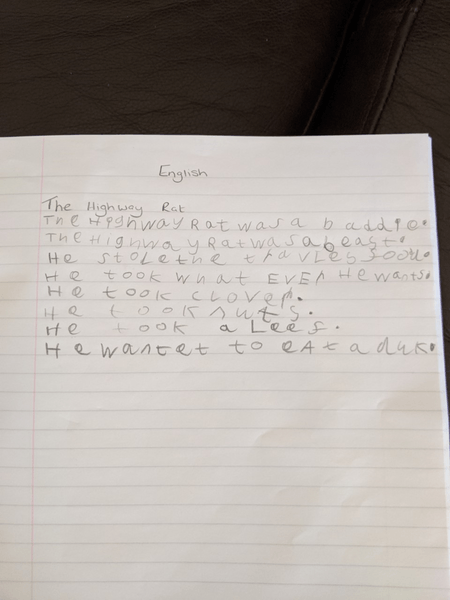 English
The Highway Rat
The Highway Rat was a baddie.
The Highway Rat was a beast.
He stole the travles food.
He took what EVEr He wants.
He took clover.
He took nuts.
He took a Leef.
He wantet to eAt a duk.